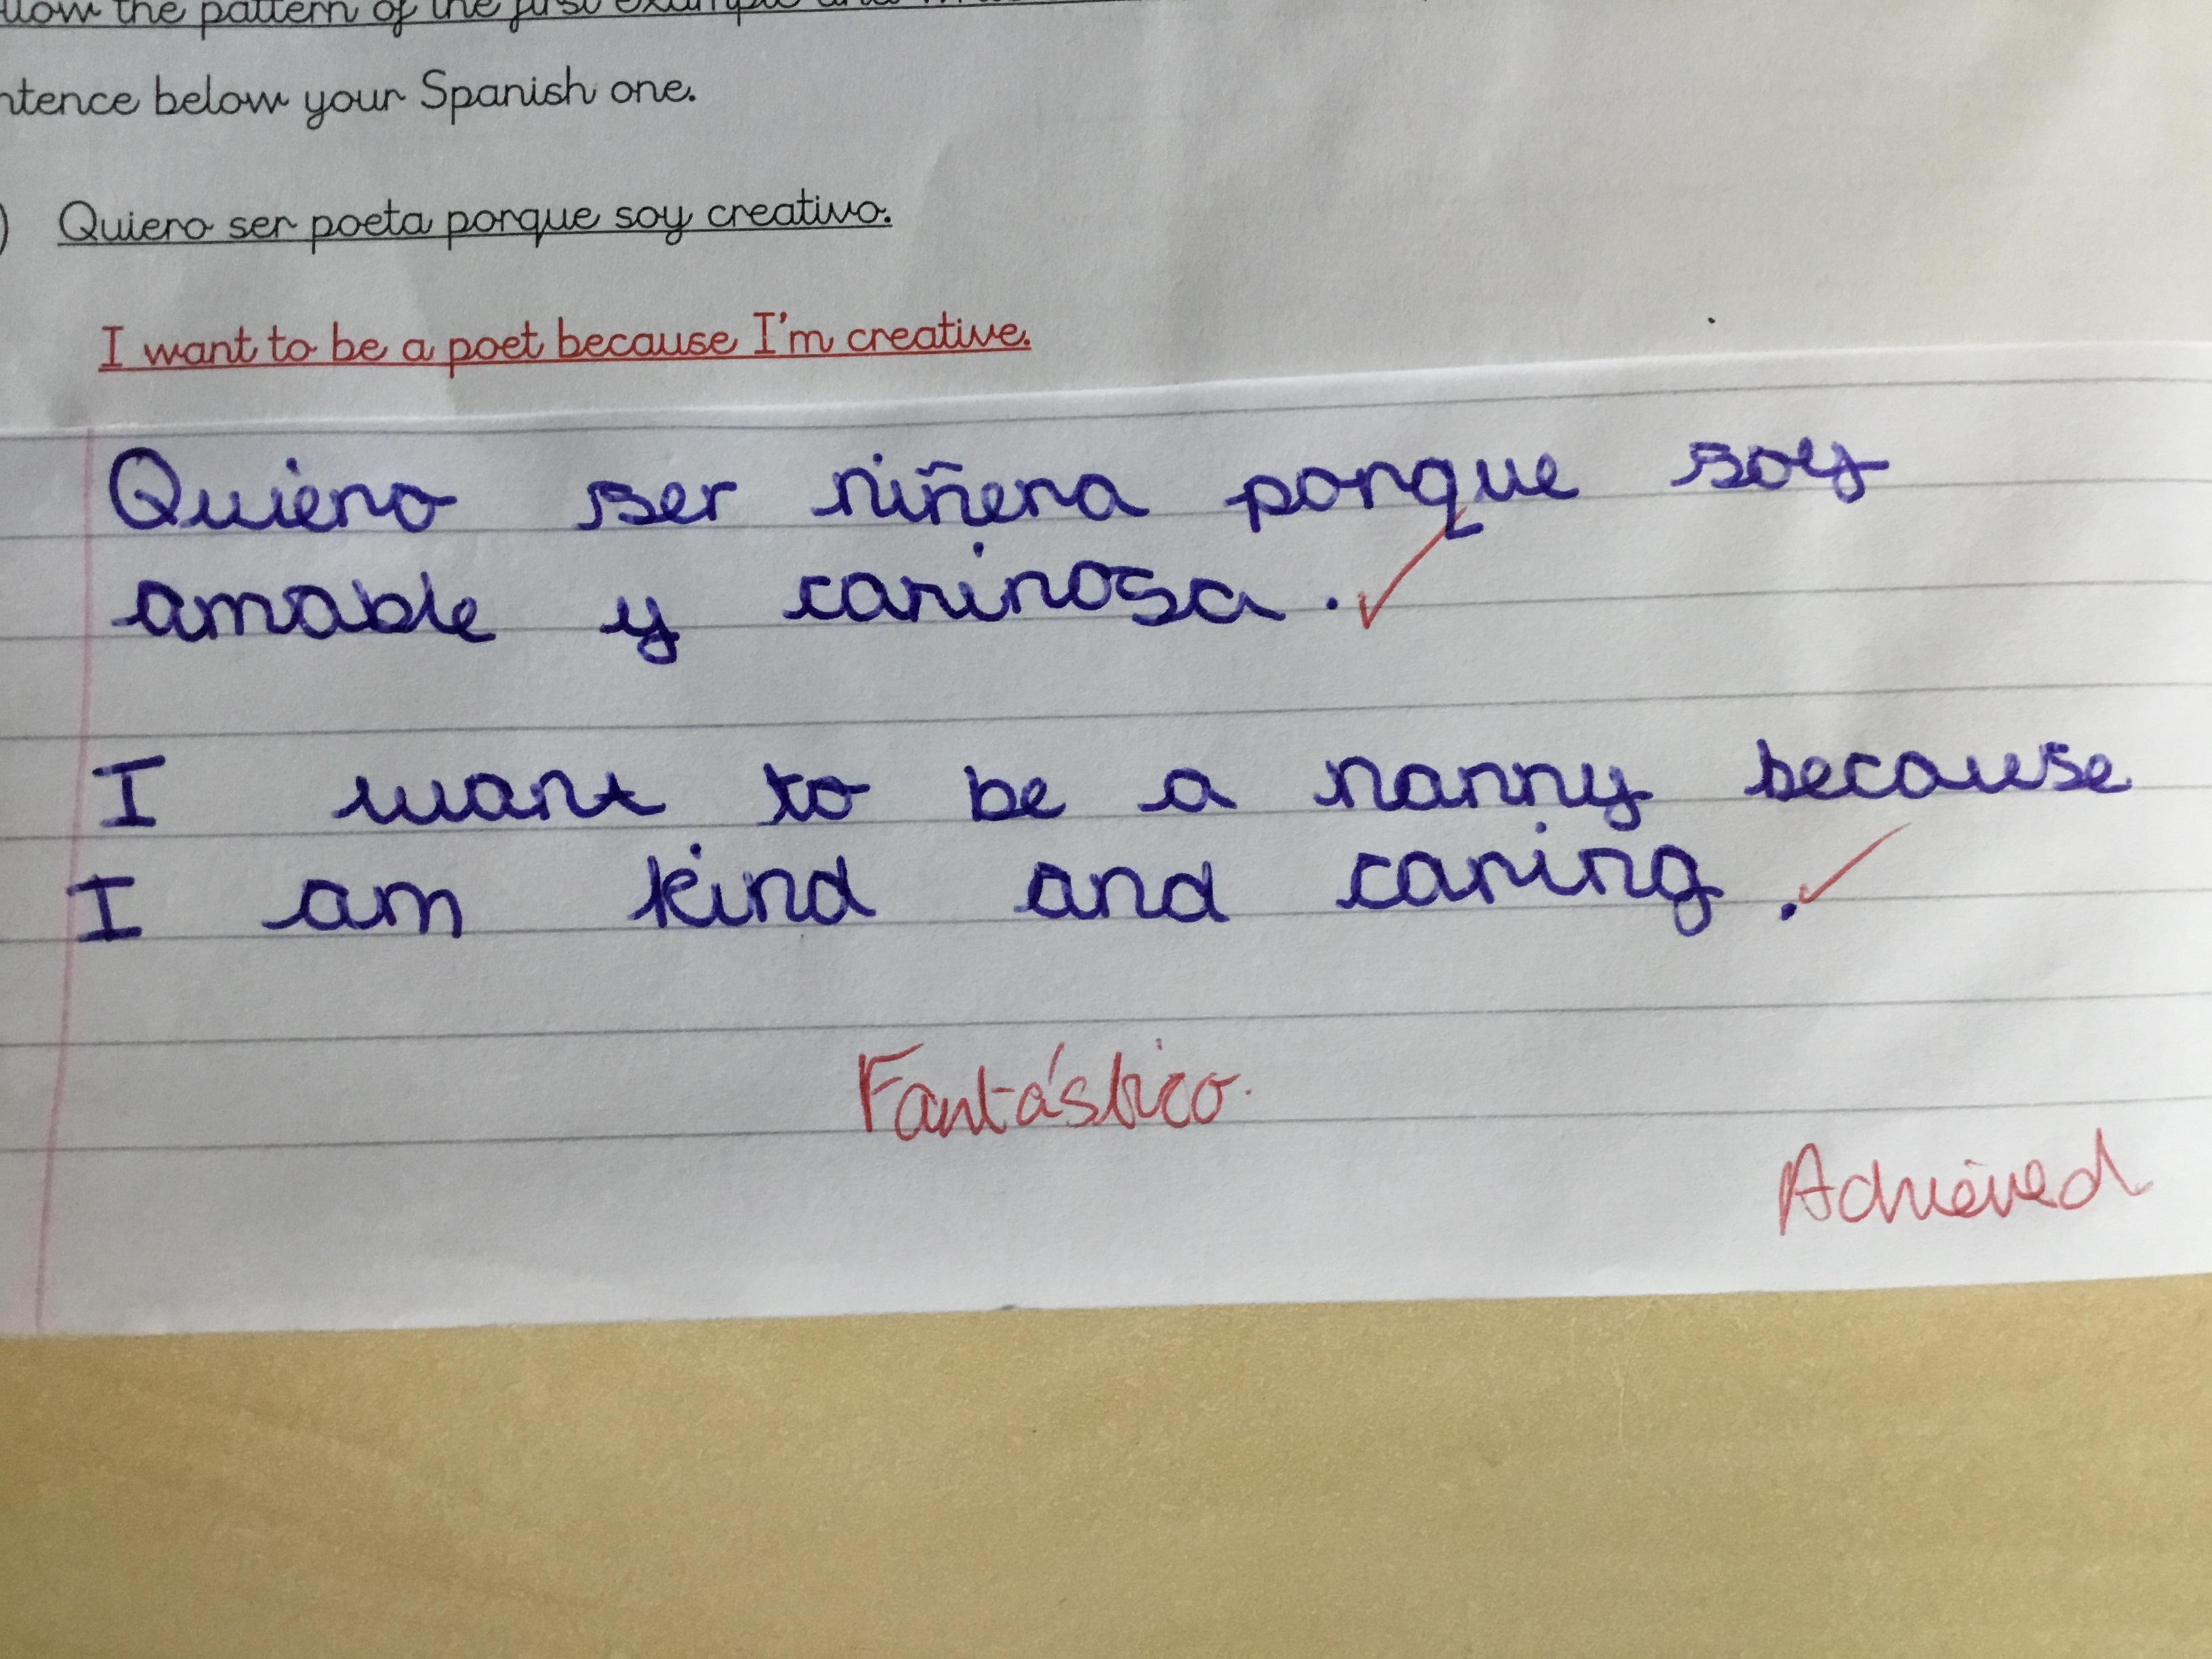 the pattern of the first example and
ntence below your Spanish one.
) Quiero ser poeta porque soy creativo.
I want to be a poet because I'm creative.
Quiero ser niñera porque soy
amable y carinosa.
I want to be a nanny because
I am kind and caring.
Fantástico.
Achieved